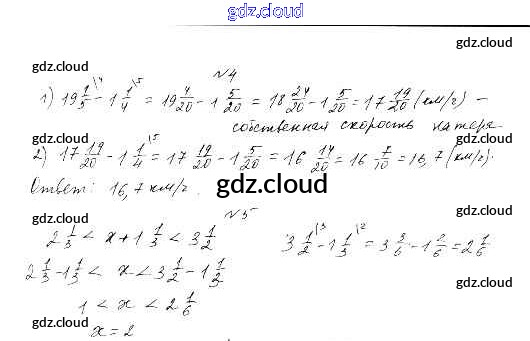 gdz.cloud
gdz.cloud
gdz.cloud
№4
1) 19 1/5 \4 - 1 1/4 \5 = 19 4/20 - 1 5/20 = 18 24/20 - 1 5/20 = 17 19/20 (км/ч) -
собственная скорость катера.
gdz.cloud
gdz.cloud
2) 17 19/20 - 1 1/4 \5 = 17 19/20 - 1 5/20 = 16 14/20 = 16 7/10 = 16,7 (км/ч).
Ответ: 16,7 км/ч.
gdz.cloud
gdz.cloud
gdz.cloud
№5
2 1/3 < x + 1 1/3 < 3 1/2
3 1/2 \3 - 1 1/3 \2 = 3 3/6 - 1 2/6 = 2 1/6
2 1/3 - 1 1/3 < x < 3 1/2 - 1 1/3
gdz.cloud
gdz.cloud
1 < x < 2 1/6
gdz.cloud
gdz.cloud
x = 2